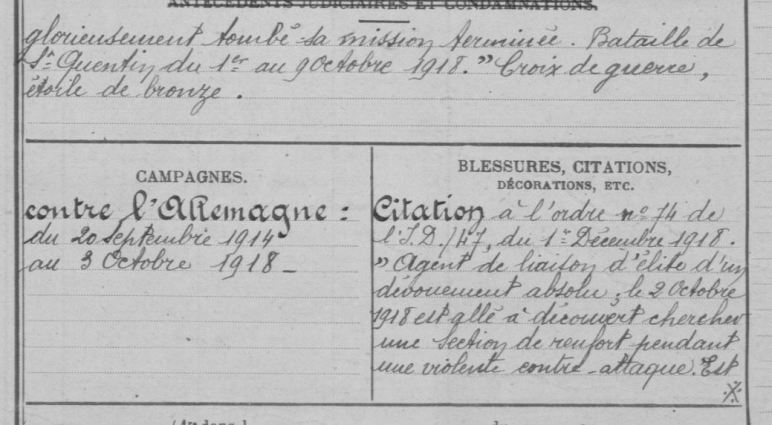 ANTÉCÉDENTS JUDICIAIRES ET CONDAMNATIONS.
glorieusement tombé sa mission terminée. Bataille de
St Quentin du 1er au 9 Octobre 1918." Croix de guerre,
étoile de bronze.
CAMPAGNES.
contre l'Allemagne :
du 20 Septembre 1914
au 3 Octobre 1918_
BLESSURES, CITATIONS,
DÉCORATIONS, ETC.
Citation à l'ordre no 74 de
l'I.D./47, du 1er Décembre 1918.
"Agent de liaison d'élite d'un
dévouement absolu; le 2 Octobre
1918 est allé à découvert chercher
une section de renfort pendant
une violente contre-attaque. Est